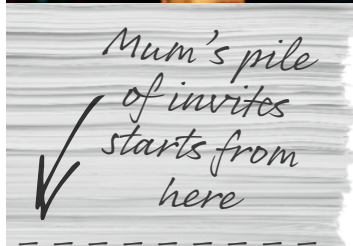 Mum's pile
of invites
starts from
here